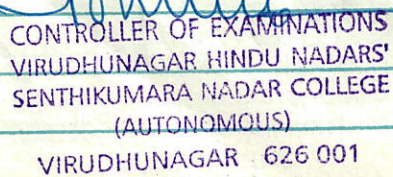 CONTROLLER OF EXAMINATIONS
VIRUDHUNAGAR HINDU NADARS'
SENTHIKUMARA NADAR COLLEGE
(AUTONOMOUS)
VIRUDHUNAGAR 626 001